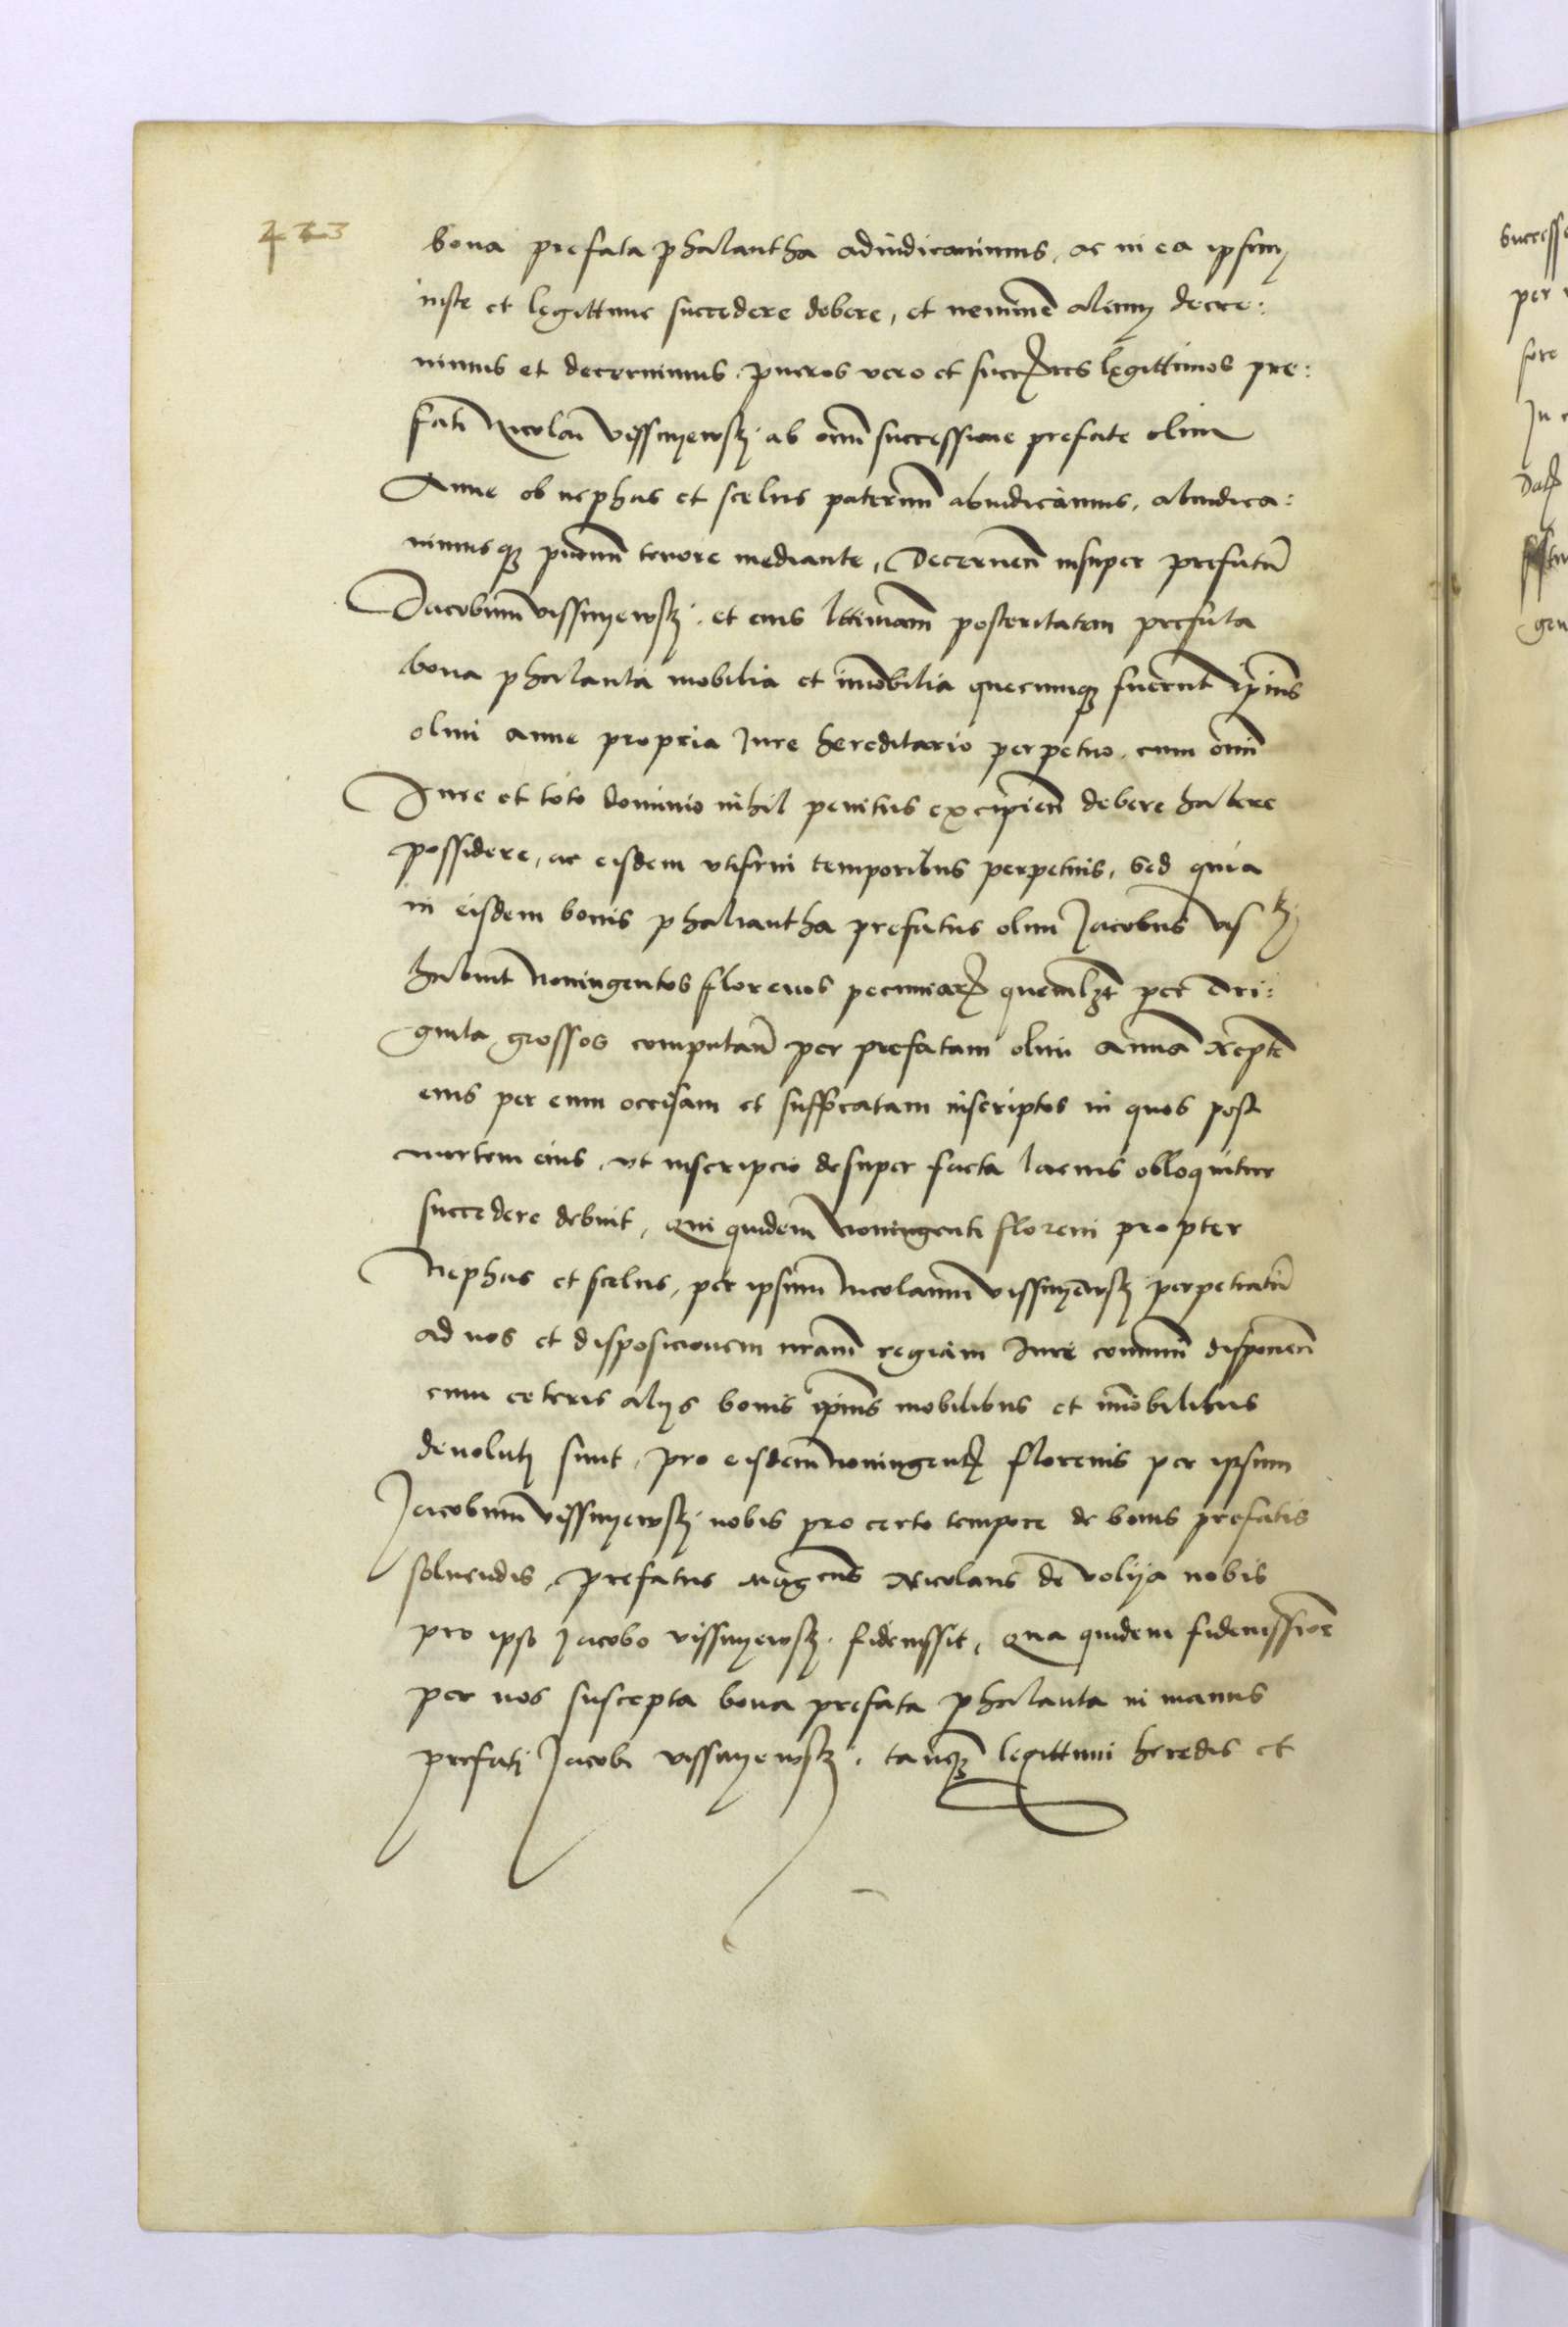 423
bona prefata phalantha adiudicauimus, ac in ea ipsum
iuste et legittime succedere debere, et neminē alium decre:
uimus et decernimus. pueros vero et succ̄res legittimos pre:
fati Nicolai vissnyewsky ab om̄i successione prefate olim
Anne ob nephas et scelus paternum abiudicamus, abiudica:
uimusq3 pn̄cium tenore mediante, Decernen̄ insuper prefatū
Jacobum vissnyewsky. et eius lttimam̄ posteritatem prefata
bona phalanta mobilia et im̄obilia quecumq3 fuerunt ip̄ius
olim anne propria Jure hereditario perpetuo. cum om̄i
Jure et toto dominio nihil penitus excipien̄ debere habere
possidere, ac eisdem vtifrui temporibus perpetuis, Sed quia
in eisdem bonis phaliantha prefatus olim Jacobus vis ky
habuit Noningentos florenos pecuniar̄ quemlȝt per tri:
ginta grossos computan̄ per prefatam olim annā
eius per eum occisam et suffocatam inscriptos in quos post
mortem eius, vt inscripcio desuper facta lacius obloquitur
succedere debuit, Qui quidem Noningenti floreni propter
Nephas et scelus, per ipsum Nicolaum vissnyewsky perpetratū
ad nos et disposicionem nr̄am regiam Jure com̄uni disponen̄
cum ceteris alys bonis ip̄ius mobilibus et im̄obilibus
deuoluti sunt, pro eisdem noningent̄ florenis per ipsum
Jacobum vissnyewsky nobis pro certo tempore de bonis prefatis
soluendis, prefatus Magcus Nicolaus de volya nobis
pro ipso Jacobo vissnyewsky. fideiussit, Qua quidem fideiussione
per nos suscepta bona prefata phalanta in manus
prefati Jacobi vissnyewsky. tanq3 legittimi heredis et